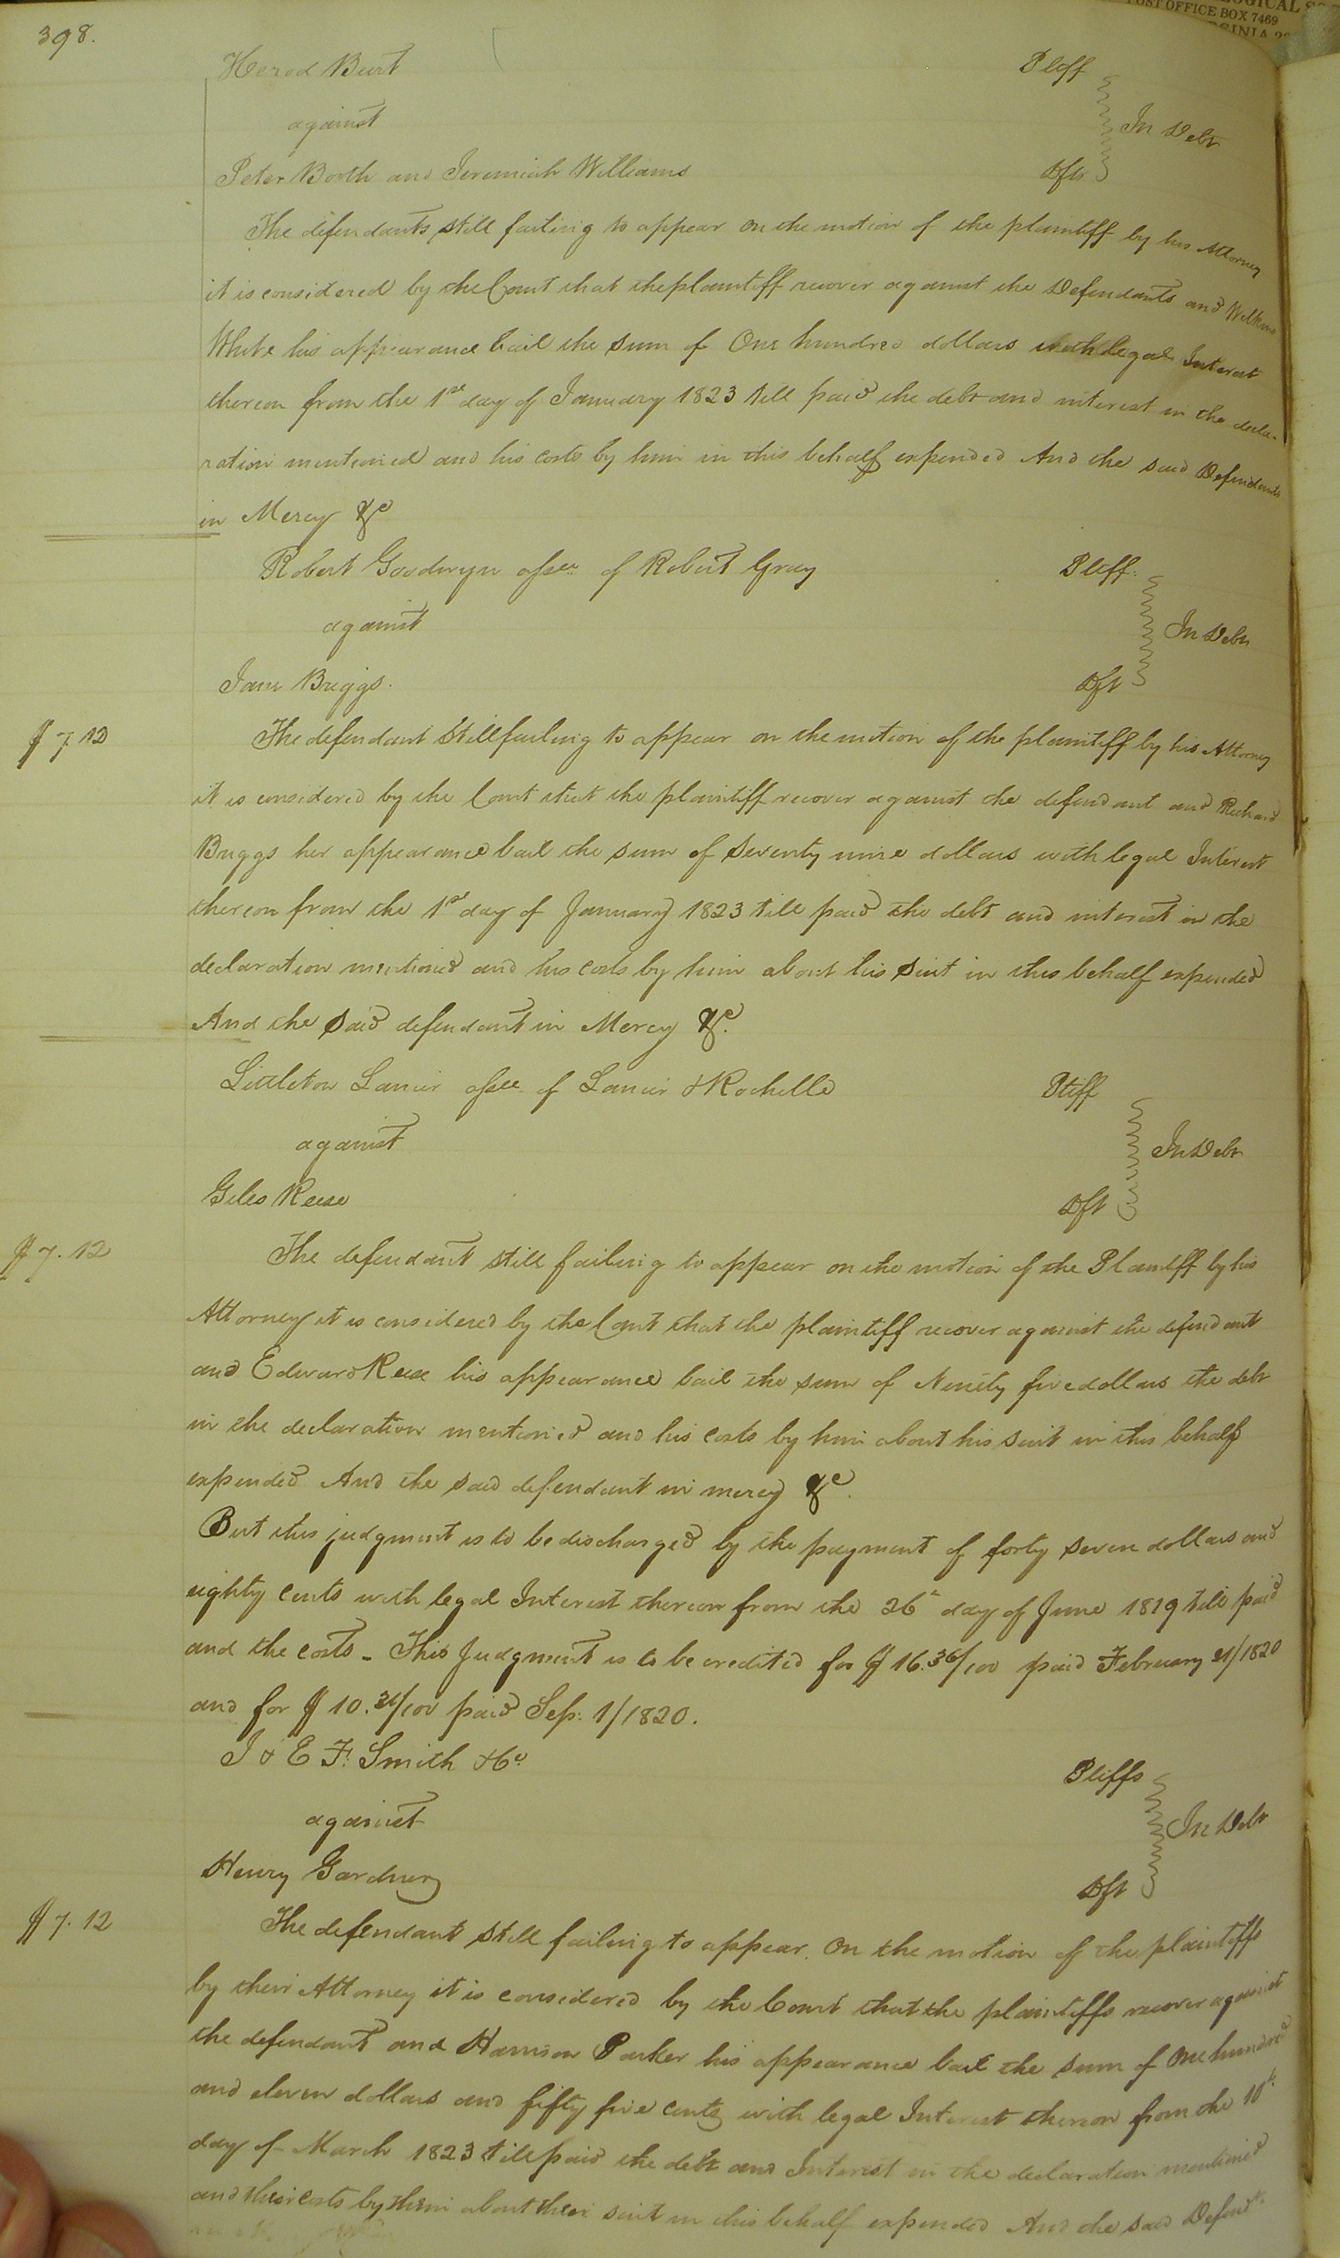 398.
POST OFFICE BOX 7469
Herod Burt Pltff
against In Debt
Peter Booth and Jeremiah Williams Dfts
The defendants still failing to appear on the motion of the plaintiff by his Attorney
it is considered by the Court that the plaintiff recover against the Defendants and
White his appearance bail the sum of One hundred dollars with legal Interest
thereon from the 1st day of January 1823 till paid the debt and interest in the decla-
ration mentioned and his costs by him in this behalf expended And the said Defendants
in Mercy &c
Robert Goodwyn assee of Robert Gray Pltff.
against In Debt
Jane Briggs. Dft
$7.12
The defendant Still failing to appear on the motion of the plaintiff by his Attorney
it is considered by the Court that the plaintiff recover against the defendant and Richard
Briggs her appearance bail the sum of Seventy nine dollars with legal Interest
thereon from the 1st day of January 1823 till paid the debt and interest in the
declaration mentioned and his costs by him about his Suit in this behalf expended
And the said defendant in Mercy &c.
Littleton Lanier assee of Lanier & Rochelle Pltff
against In Debt
Giles Reese Dft
$7.12
The defendant still failing to appear on the motion of the Plaintiff by his
Attorney it is considered by the Court that the plaintiff recover against the defendant
and Edward Reese his appearance bail the sum of Ninety five dollars the debt
in the declaration mentioned and his costs by him about his suit in this behalf
expended And the said defendant in mercy &c.
But this judgment is to be discharged by the payment of forty seven dollars and
eighty cents with legal Interest thereon from the 26th day of June 1819 till paid
and the costs - This Judgment is to be credited for $16.36/100 paid February 21/1820
and for $10.31/100 paid Sep. 1/1820.
J & E F. Smith & Co. Pltffs
against In Debt
Henry Gardner Dft
$7.12
The defendant still failing to appear. On the motion of the plaintiffs
by their Attorney it is considered by the Court that the plaintiffs recover against
the defendant and Harrison Parker his appearance bail the sum of One hundred
and eleven dollars and fifty five cents with legal Interest thereon from the 10th
day of March 1823 till paid the debt and Interest in the declaration mentioned
and their costs by them about their suit in this behalf expended And the said Defendt